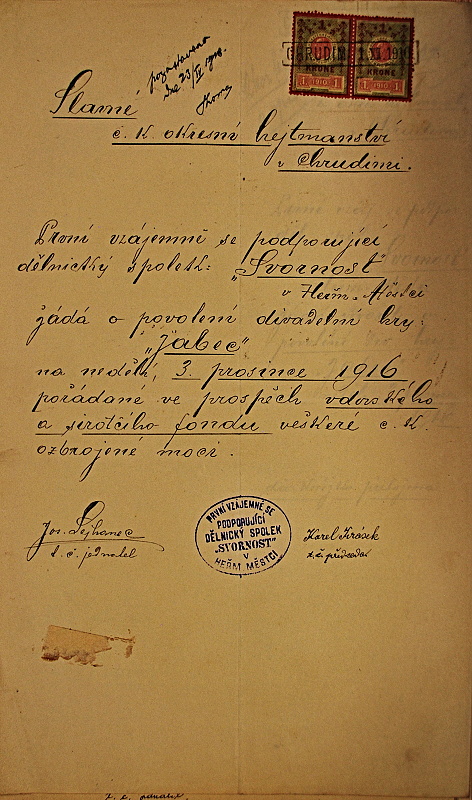 dne 23/XI 1916.
CHRUDIM 1 XI 1916
KRONE KRONE
1 1916 1 1 1916 1
Slavné
c. k. okresní hejtmanství
v Chrudimi.
První vzájemně se podporující
dělnický spolek: "Svornost"
v Heřm. Městci
žádá o povolení divadelní hry:
"Jabec"
na neděli, 3. prosince 1916
pořádané ve prospěch vdovského
a sirotčího fondu veškeré c. k.
ozbrojené moci.
Jos.
t. č. jednatel
PRVNÍ VZÁJEMNĚ SE
PODPORUJÍCÍ
DĚLNICKÝ SPOLEK
"SVORNOST"
V
HEŘM. MĚSTCI
Karel Jirásek
t. č. předseda